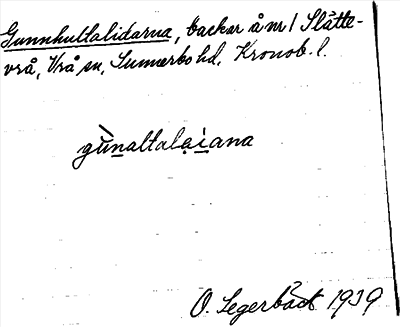 Gunnhultalidarna, backar å nr 1 Slätte-
vrå, Vrå sn, Sunnerbo hd, Kronob. l.
gùnaltalaiana
O. Segerbäck 1939